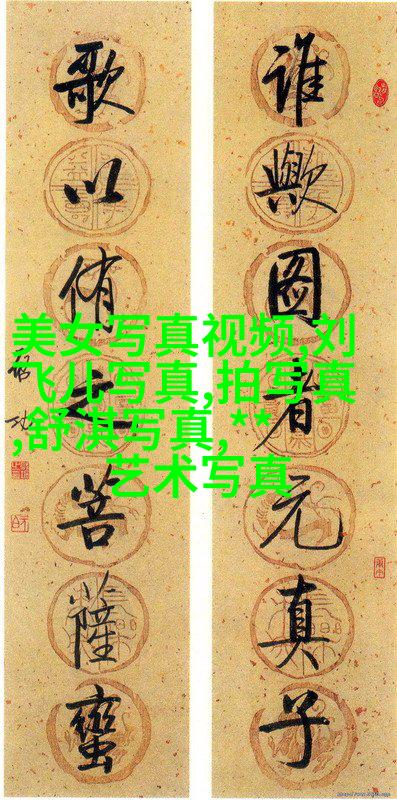 谁歟图者元真子
歌以侑之菩薩蠻
启功
美女写真视频,刘
飞儿写真,拍写真
,舒淇写真,**
艺术写真